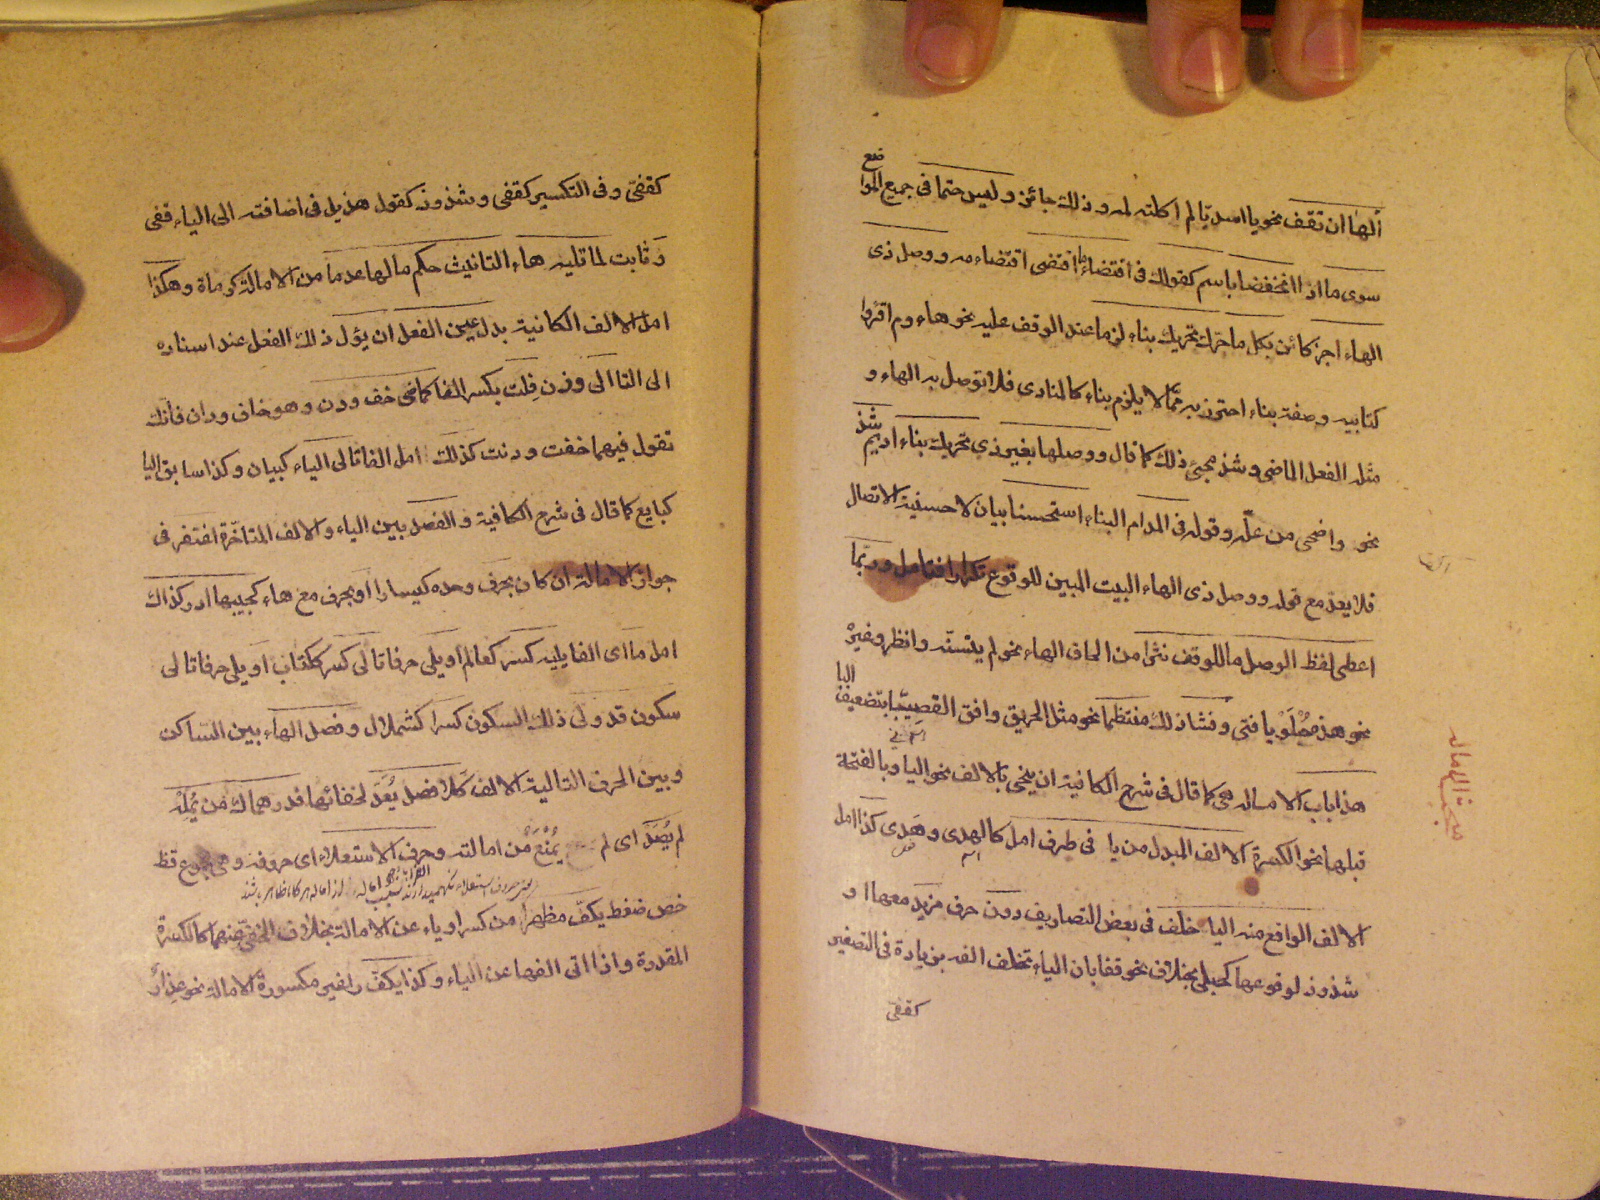 ألها ان تقف نحو يا اسد يا لم اكلته لمه وذلك جائز وليس حتما فى جميع المواضع
سوى ما اذا انخفضا باسم كقولك فى اقتضاء ما اقتضى اقتضاء مه ووصل ذى
الهاء اجز كائن بكل ما حرك تحريك بناء لزما عند الوقف عليه نحو هاؤم اقرؤا
كتابيه وصفة بناء احترز به عما لا يلزم بناء كالمنادى فلا توصل به الهاء و
مثله الفعل الماضى وشذ مجئ ذلك كما قال ووصلها بغير ذى تحريك بناء اديم شذ
نحو واضحى من عله وقوله فى المدام البناء استحسنا بيان لاحسنية الاتصال
فلا يعد مع قوله ووصل ذى الهاء البيت المبين للوقوع تكرارا فتامل وربما
اعطى لفظ الوصل ما للوقف نثرا من الحاق الهاء نحو لم يتسنه وانظر وغيره
نحو هذه حبلو يا فتى وفشا ذلك منتظما نحو مثل الحريق وافق القصبا بتضعيف البا
هذا باب الامالة هى كما قال فى شرح الكافية ان ينحى بالالف نحو اليا وبالفتحة
قبلها نحو الكسرة الالف المبدل من يا فى طرف امل كالهدى وهدى كذا امل
الالف الواقع منه اليا خلف فى بعض التصاريف دون حرف مزيد معها او
شذوذ لوقوعها كحبلى بخلاف نحو قفا بان الياء تخلف الفه بزيادة فى التصغير
كقفى
مبحث الاماله
كقفى وفى التكسير كقفى وشذوذ كقول هذيل فى اضافته الى الياء قفى
وثابت لما تليه هاء التانيث حكم ما لها عدما من الامالة كرماة وهكذا
امل الالف الكائنة بدل عين الفعل ان يؤل ذلك الفعل عند اسناده
الى التا الى وزن فلت بكسر الفا كماضى خف ودن وهو خاف ودان فانك
تقول فيهما خفت ودنت كذلك امل الفا تالى الياء كبيان وكذا سابق اليا
كبايع كما قال فى شرح الكافية والفصل بين الياء والالف المتاخرة اغتفر فى
جواز الامالة ان كان بحرف وحده كيسارا او بحرف مع هاء كجيبها ادر كذاك
امل ما اى الفا يليه كسر كعالم او يلى حرفا تالى كسر ككتاب او يلى حرفا تالى
سكون قد ولى ذلك السكون كسرا كشملال وفصل الهاء بين الساكن
وبين الحرف التالية الالف كلا فصل يعد لخفائها فدرهماك من يمله
لم يصد اى لم يمنع من امالته وحرف الاستعلاء اى حروفه وهى مجموع قظ
خص ضغط يكف مظهرا من كسر او ياء عن الامالة بخلاف الخفى منهما كالكسرة
المقدرة واذا اتى الفها عن الياء وكذا يكف را غير مكسورة الامالة نحو عذار